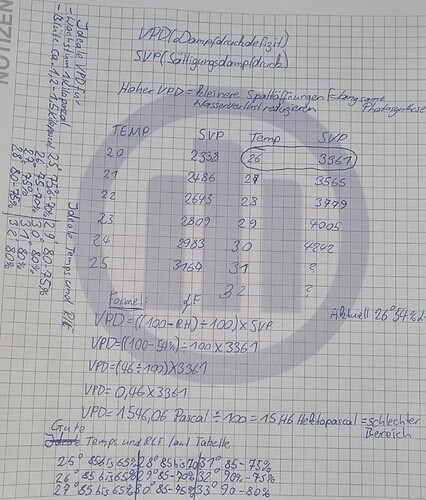 NOTIZEN
VPD(Dampfdruckdefizit)
SVP(Sättigungsdampfdruck)
Hoher VPD = kleinere Spaltöffnungen = langsame Photosynthese
Wasserverlust reduzieren
TEMP SVP Temp SVP
20 2338 26 3361
21 2486 27 3565
22 2643 28 3779
23 2809 29 4005
24 2983 30 4242
25 3167 31 ?
32 ?
Formel: LF
VPD=((100-RH)÷100)×SVP
Aktuell 26° 54%
VPD=((100-54%)÷100×3361
VPD=(46÷100)×3361
VPD=0,46×3361
VPD=1546,06 Pascal ÷100=15,46 Hektopascal=schlechter Bereich
Gute
Ideale Temps und RLF laut Tabelle
25° 85 bis 65% 28° 85 bis 70 31° 85-75%
26° 85 bis 65% 29° 85-70% 32° 90%-75%
27° 85 bis 65% 30° 85-75% 33° 90-80%
Ideale VPD für
-Wachstum 1 Kilopascal
-Blüte ca. 1,2-1,5 Kilopascal
Ideale Temps und RLF
25° 75%-70% 29° 80-75%
26° 75-70% 30° 80%
27° 75% 31° 80%
28° 80-75% 32° 80%